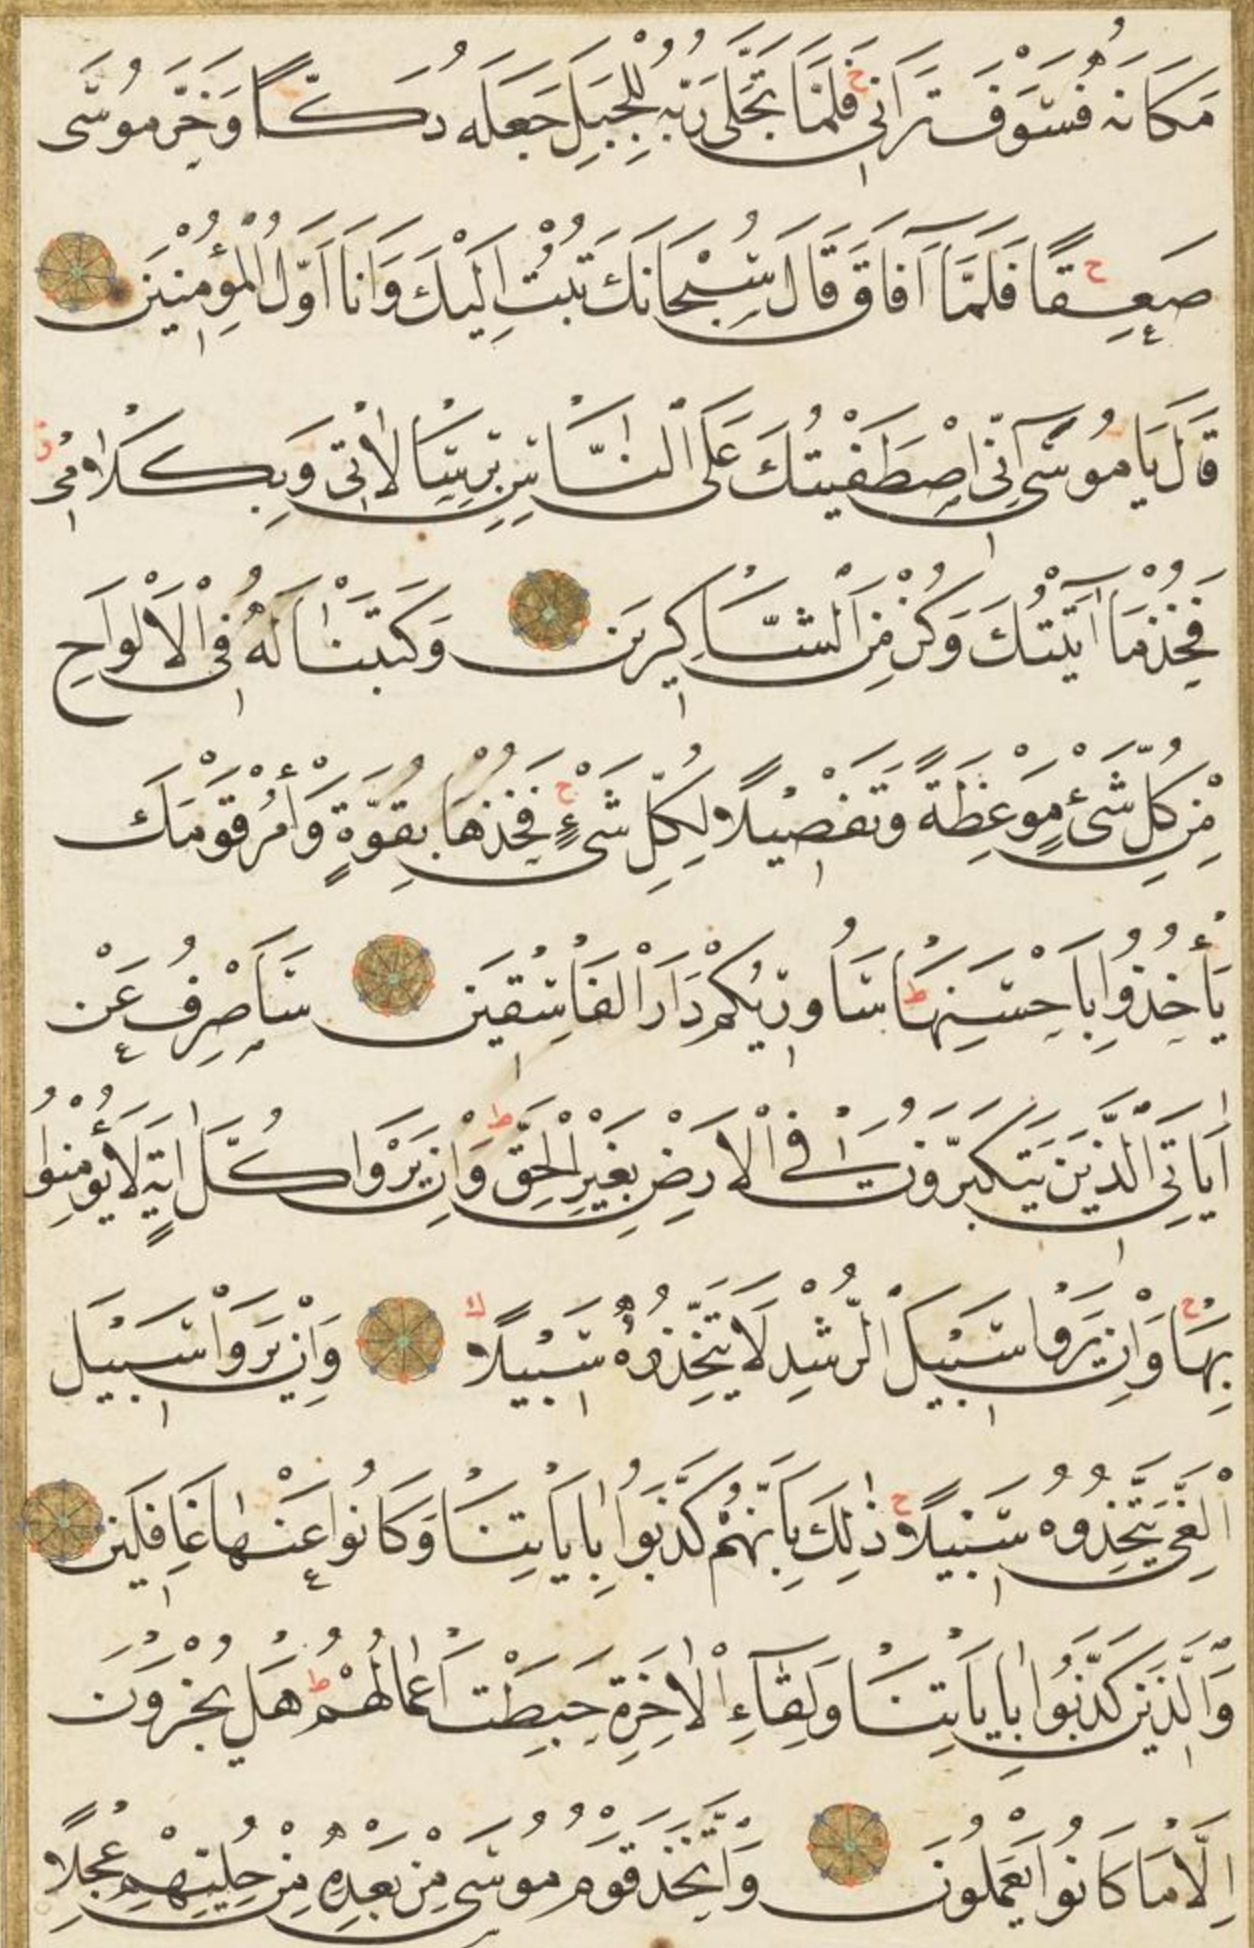 مَكَانَهُ فَسَوْفَ تَرَانِي فَلَمَّا تَجَلَّى رَبُّهُ لِلْجَبَلِ جَعَلَهُ دَكًّا وَخَرَّ مُوسَى
صَعِقًا فَلَمَّا أَفَاقَ قَالَ سُبْحَانَكَ تُبْتُ إِلَيْكَ وَأَنَا أَوَّلُ الْمُؤْمِنِينَ
قَالَ يَا مُوسَى إِنِّي اصْطَفَيْتُكَ عَلَى النَّاسِ بِرِسَالَاتِي وَبِكَلَامِي
فَخُذْ مَا آتَيْتُكَ وَكُنْ مِنَ الشَّاكِرِينَ وَكَتَبْنَا لَهُ فِي الْأَلْوَاحِ
مِنْ كُلِّ شَيْءٍ مَوْعِظَةً وَتَفْصِيلًا لِكُلِّ شَيْءٍ فَخُذْهَا بِقُوَّةٍ وَأْمُرْ قَوْمَكَ
يَأْخُذُوا بِأَحْسَنِهَا سَأُورِيكُمْ دَارَ الْفَاسِقِينَ سَأَصْرِفُ عَنْ
آيَاتِيَ الَّذِينَ يَتَكَبَّرُونَ فِي الْأَرْضِ بِغَيْرِ الْحَقِّ وَإِنْ يَرَوْا كُلَّ آيَةٍ لَا يُؤْمِنُوا
بِهَا وَإِنْ يَرَوْا سَبِيلَ الرُّشْدِ لَا يَتَّخِذُوهُ سَبِيلًا وَإِنْ يَرَوْا سَبِيلَ
الْغَيِّ يَتَّخِذُوهُ سَبِيلًا ذَلِكَ بِأَنَّهُمْ كَذَّبُوا بِآيَاتِنَا وَكَانُوا عَنْهَا غَافِلِينَ
وَالَّذِينَ كَذَّبُوا بِآيَاتِنَا وَلِقَاءِ الْآخِرَةِ حَبِطَتْ أَعْمَالُهُمْ هَلْ يُجْزَوْنَ
إِلَّا مَا كَانُوا يَعْمَلُونَ وَاتَّخَذَ قَوْمُ مُوسَى مِنْ بَعْدِهِ مِنْ حُلِيِّهِمْ عِجْلًا